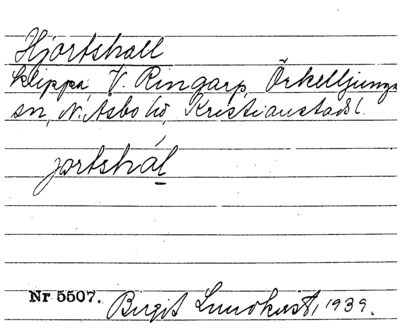 Hjortshall
klippa, V. Ringarp, Örkelljunga
sn, N. Åsbo hd, Kristianstads l.
jortshál
Nr 5507. Birgit Lundkvist, 1939.